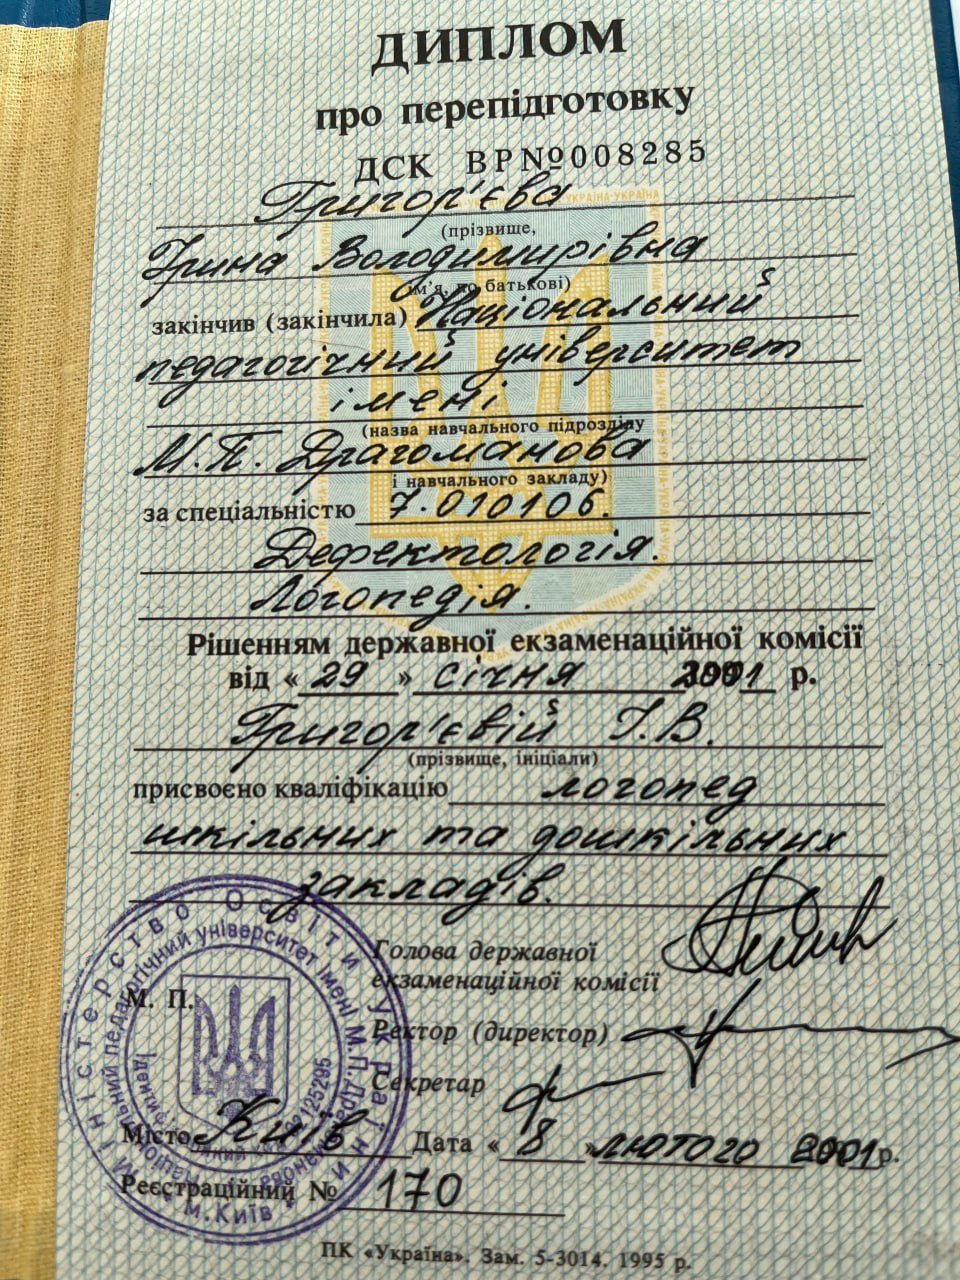 ДИПЛОМ
про перепідготовку
ДСК ВР№008285
Григор'єва
(прізвище,
Ірина Володимирівна
ім'я, по батькові)
закінчив (закінчила) Національний
педагогічний університет
імені
(назва навчального підрозділу
М.П. Драгоманова
і навчального закладу)
за спеціальністю 7.010106.
Дефектологія.
Логопедія.
Рішенням державної екзаменаційної комісії
від «29» січня 2001 р.
Григор'євій І.В.
(прізвище, ініціали)
присвоєно кваліфікацію логопед
шкільних та дошкільних
закладів.
Голова державної
екзаменаційної комісії
М. П.
Ректор (директор)
Секретар
Місто Київ Дата «8» лютого 2001р.
Реєстраційний № 170
ПК «Україна». Зам. 5-3014. 1995 р.
Міністерство Освіти України
Національний педагогічний університет імені М.П.Драгоманова
Ідентифікаційний код 02125295
м.Київ